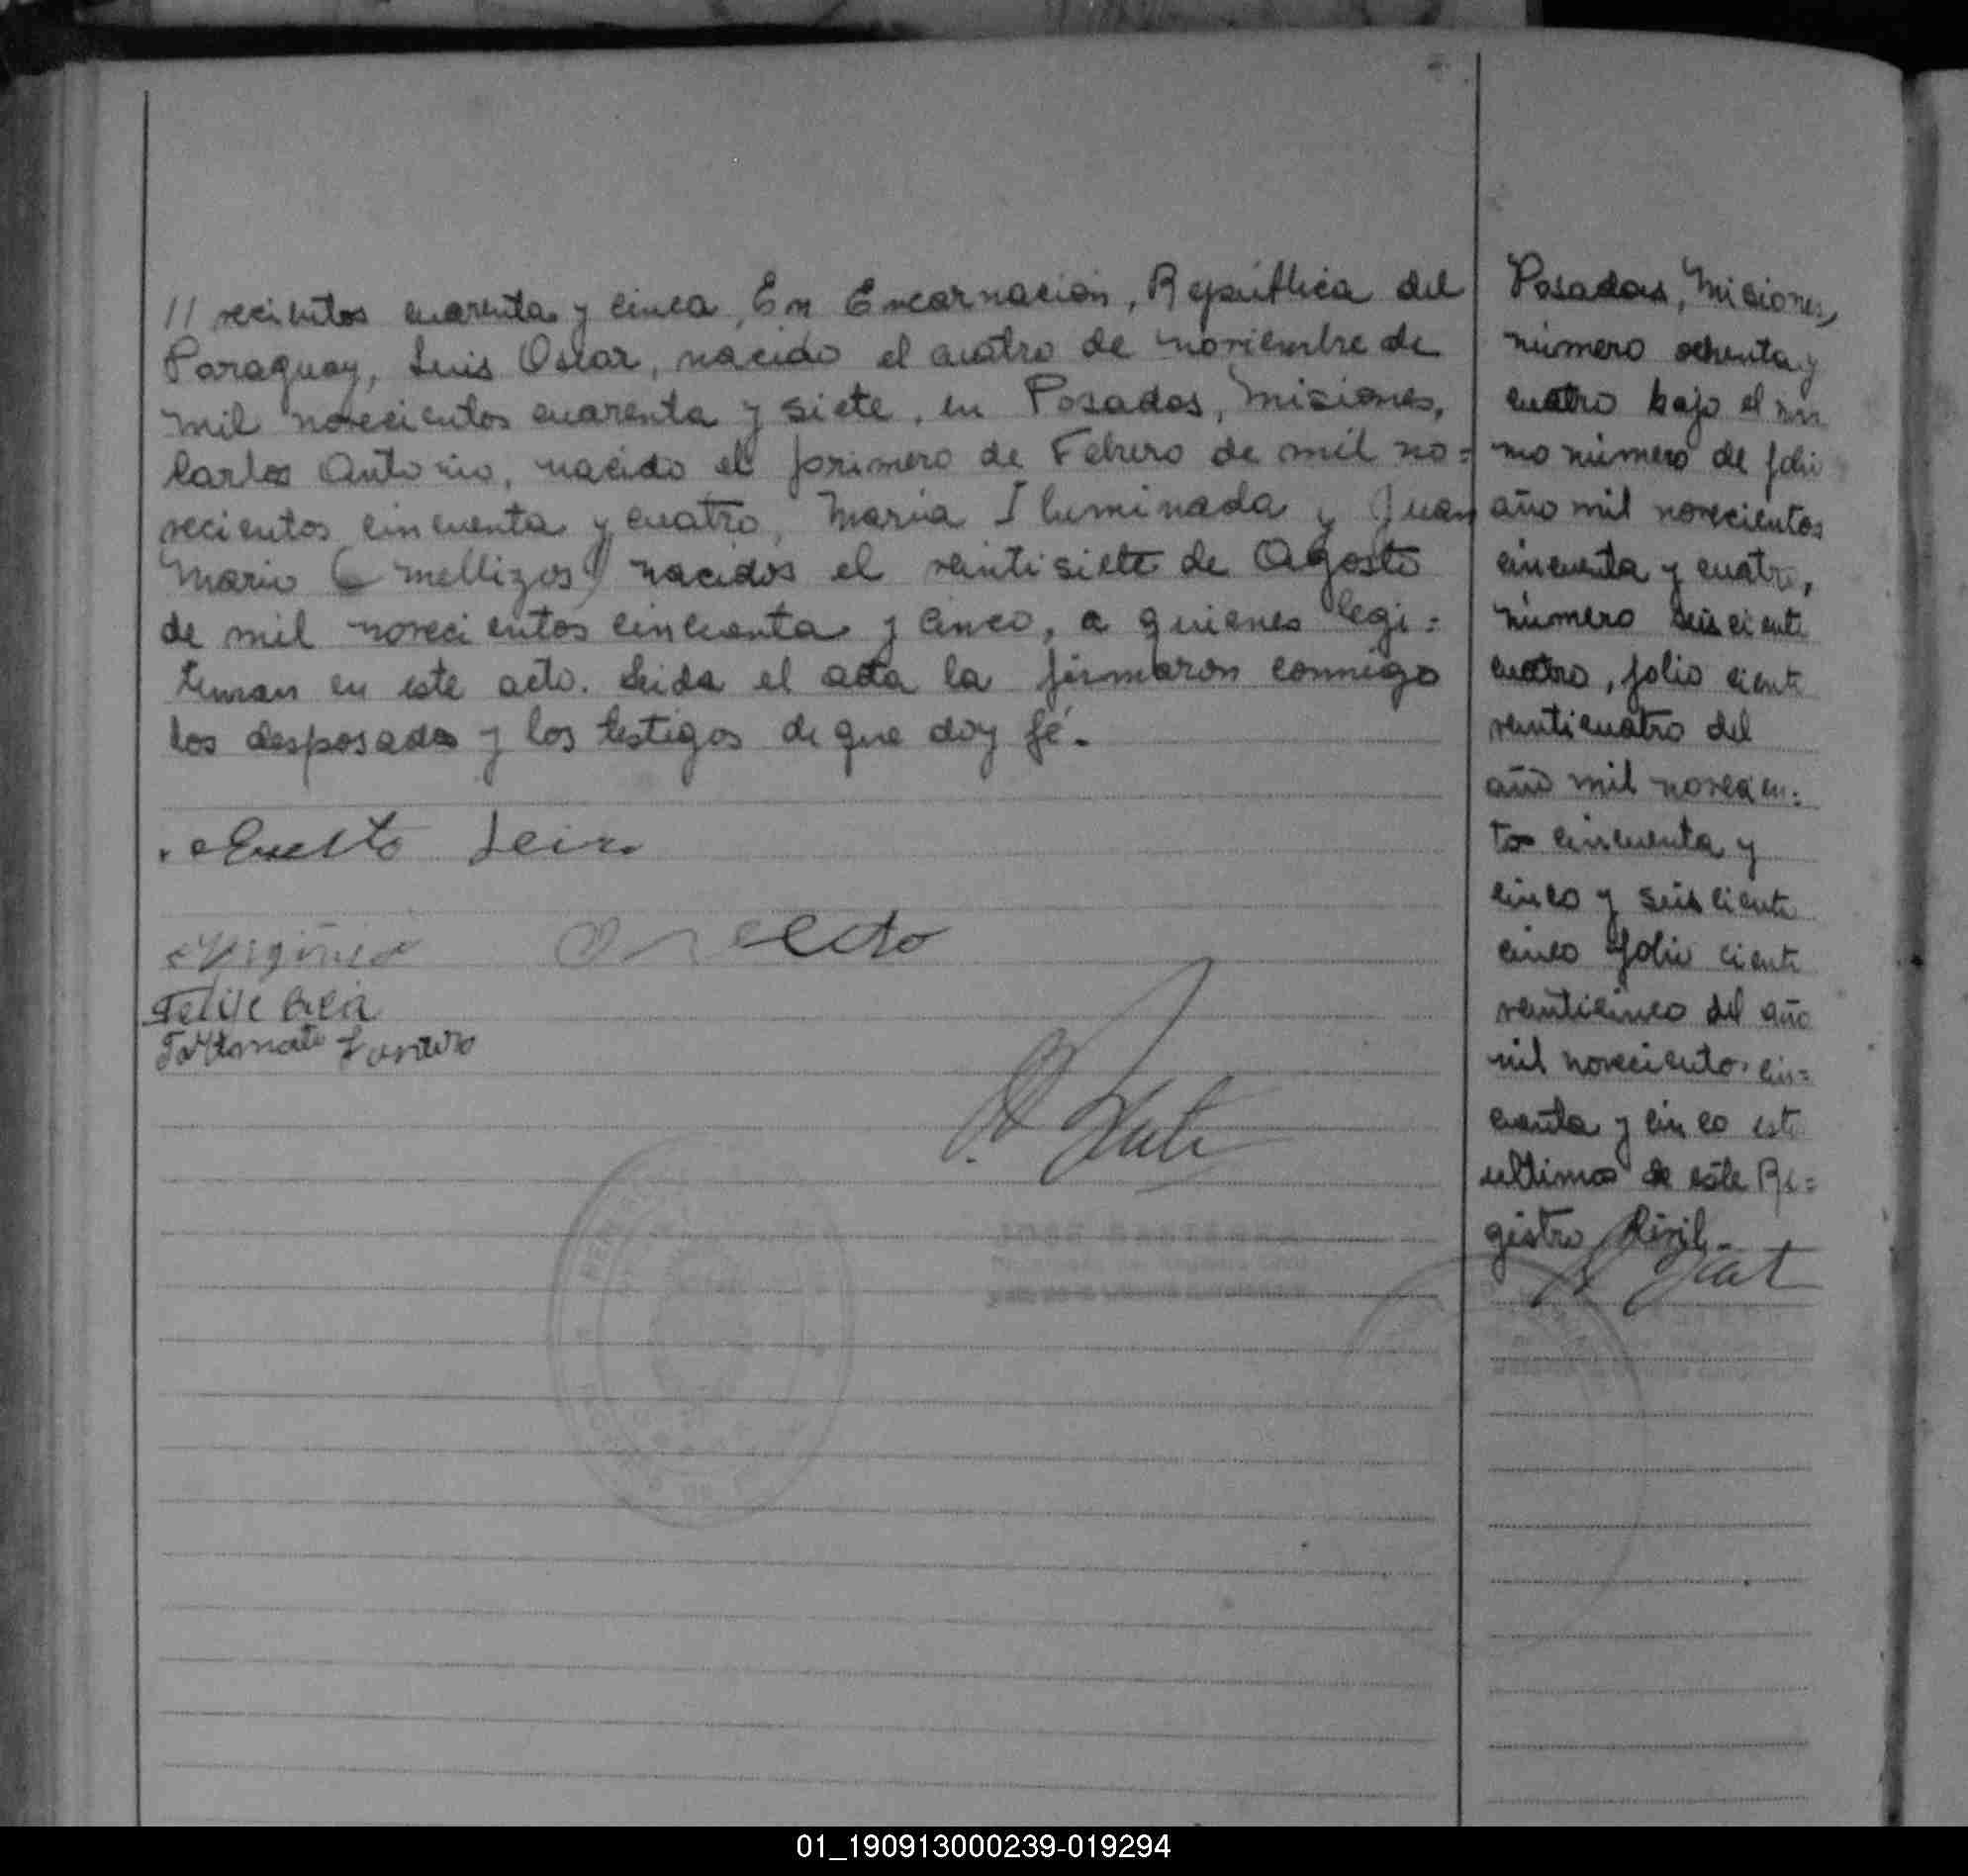 // vecientos cuarenta y cinco, En Encarnación, República del
Paraguay, Luis Oscar, nacido el cuatro de noviembre de
mil novecientos cuarenta y siete, en Posadas, Misiones,
Carlos Antonio, nacido el primero de Febrero de mil no=
vecientos cincuenta y cuatro, Maria Iluminada y Juan
Mario (mellizos) nacidos el veintisiete de Agosto
de mil novecientos cincuenta y cinco, a quienes legi=
timan en este acto. Leida el acta la firmaron conmigo
los desposados y los testigos de que doy fé.
Virginia
Felipe
Posadas, Misiones,
número ochenta y
cuatro bajo el mis
mo número de folio
año mil novecientos
cincuenta y cuatro,
número seiscientos
cuatro, folio ciento
veinticuatro del
año mil novecien=
tos cincuenta y
cinco y seiscientos
cinco folio ciento
veinticinco del año
mil novecientos cin=
cuenta y cinco este
ultimos de este Re=
gistro Civil.-
01_190913000239-019294